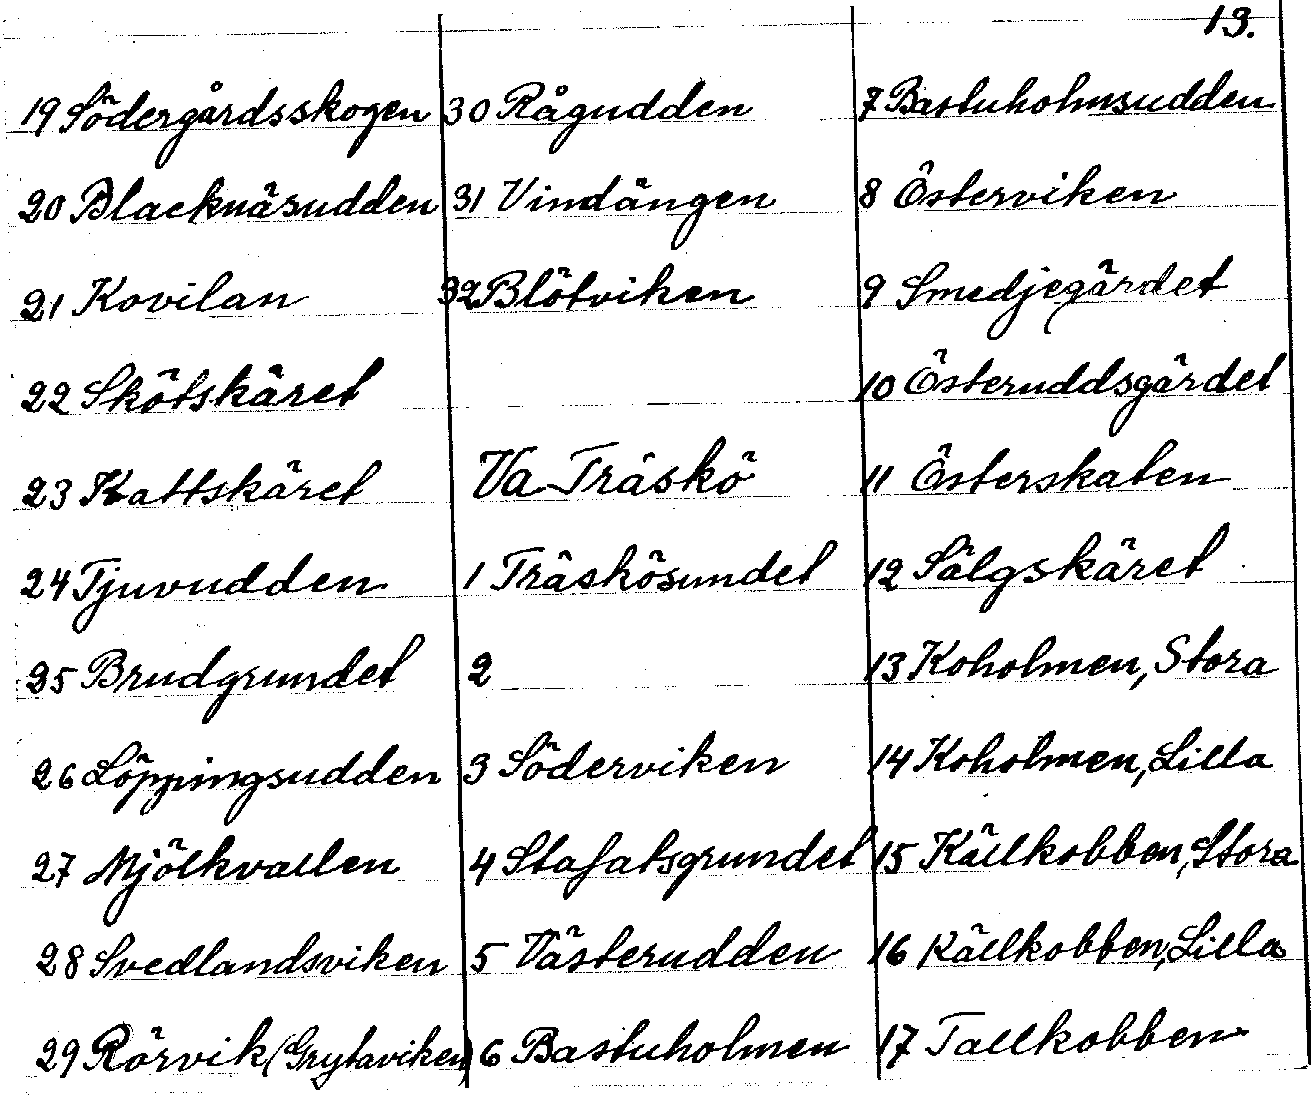 13.
19 Södergårdsskogen
20 Blacknäsudden
21 Kovilan
22 Skötskäret
23 Kattskäret
24 Tjuvudden
25 Brudgrundet
26 Löppingsudden
27 Mjölkvallen
28 Svedlandsviken
29 Rörvik (Grytaviken)
30 Rågudden
31 Vindängen
32 Blötviken
Va Träskö
1 Träskösundet
2
3 Söderviken
4 Stafatsgrundet
5 Västerudden
6 Bastuholmen
7 Bastuholmsudden
8 Österviken
9 Smedjegärdet
10 Österuddsgärdet
11 Österskaten
12 Sälgskäret
13 Koholmen, Stora
14 Koholmen, Lilla
15 Källkobben, Stora
16 Källkobben, Lilla
17 Tallkobben